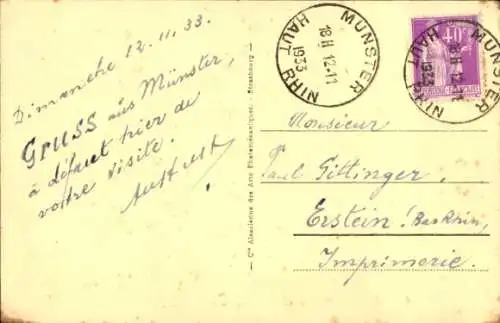 Dimanche 12.11.33.
Gruss aus Münster,
à défaut hier de
votre visite.
MUNSTER
18H 12-11
1933
HAUT RHIN
40c
MUNSTER
18H 12-11
1933
HAUT RHIN
Monsieur
Paul Gittinger,
Erstein (Bas Rhin)
Imprimerie.
Cie Alsacienne des Arts Photomécaniques, Strasbourg